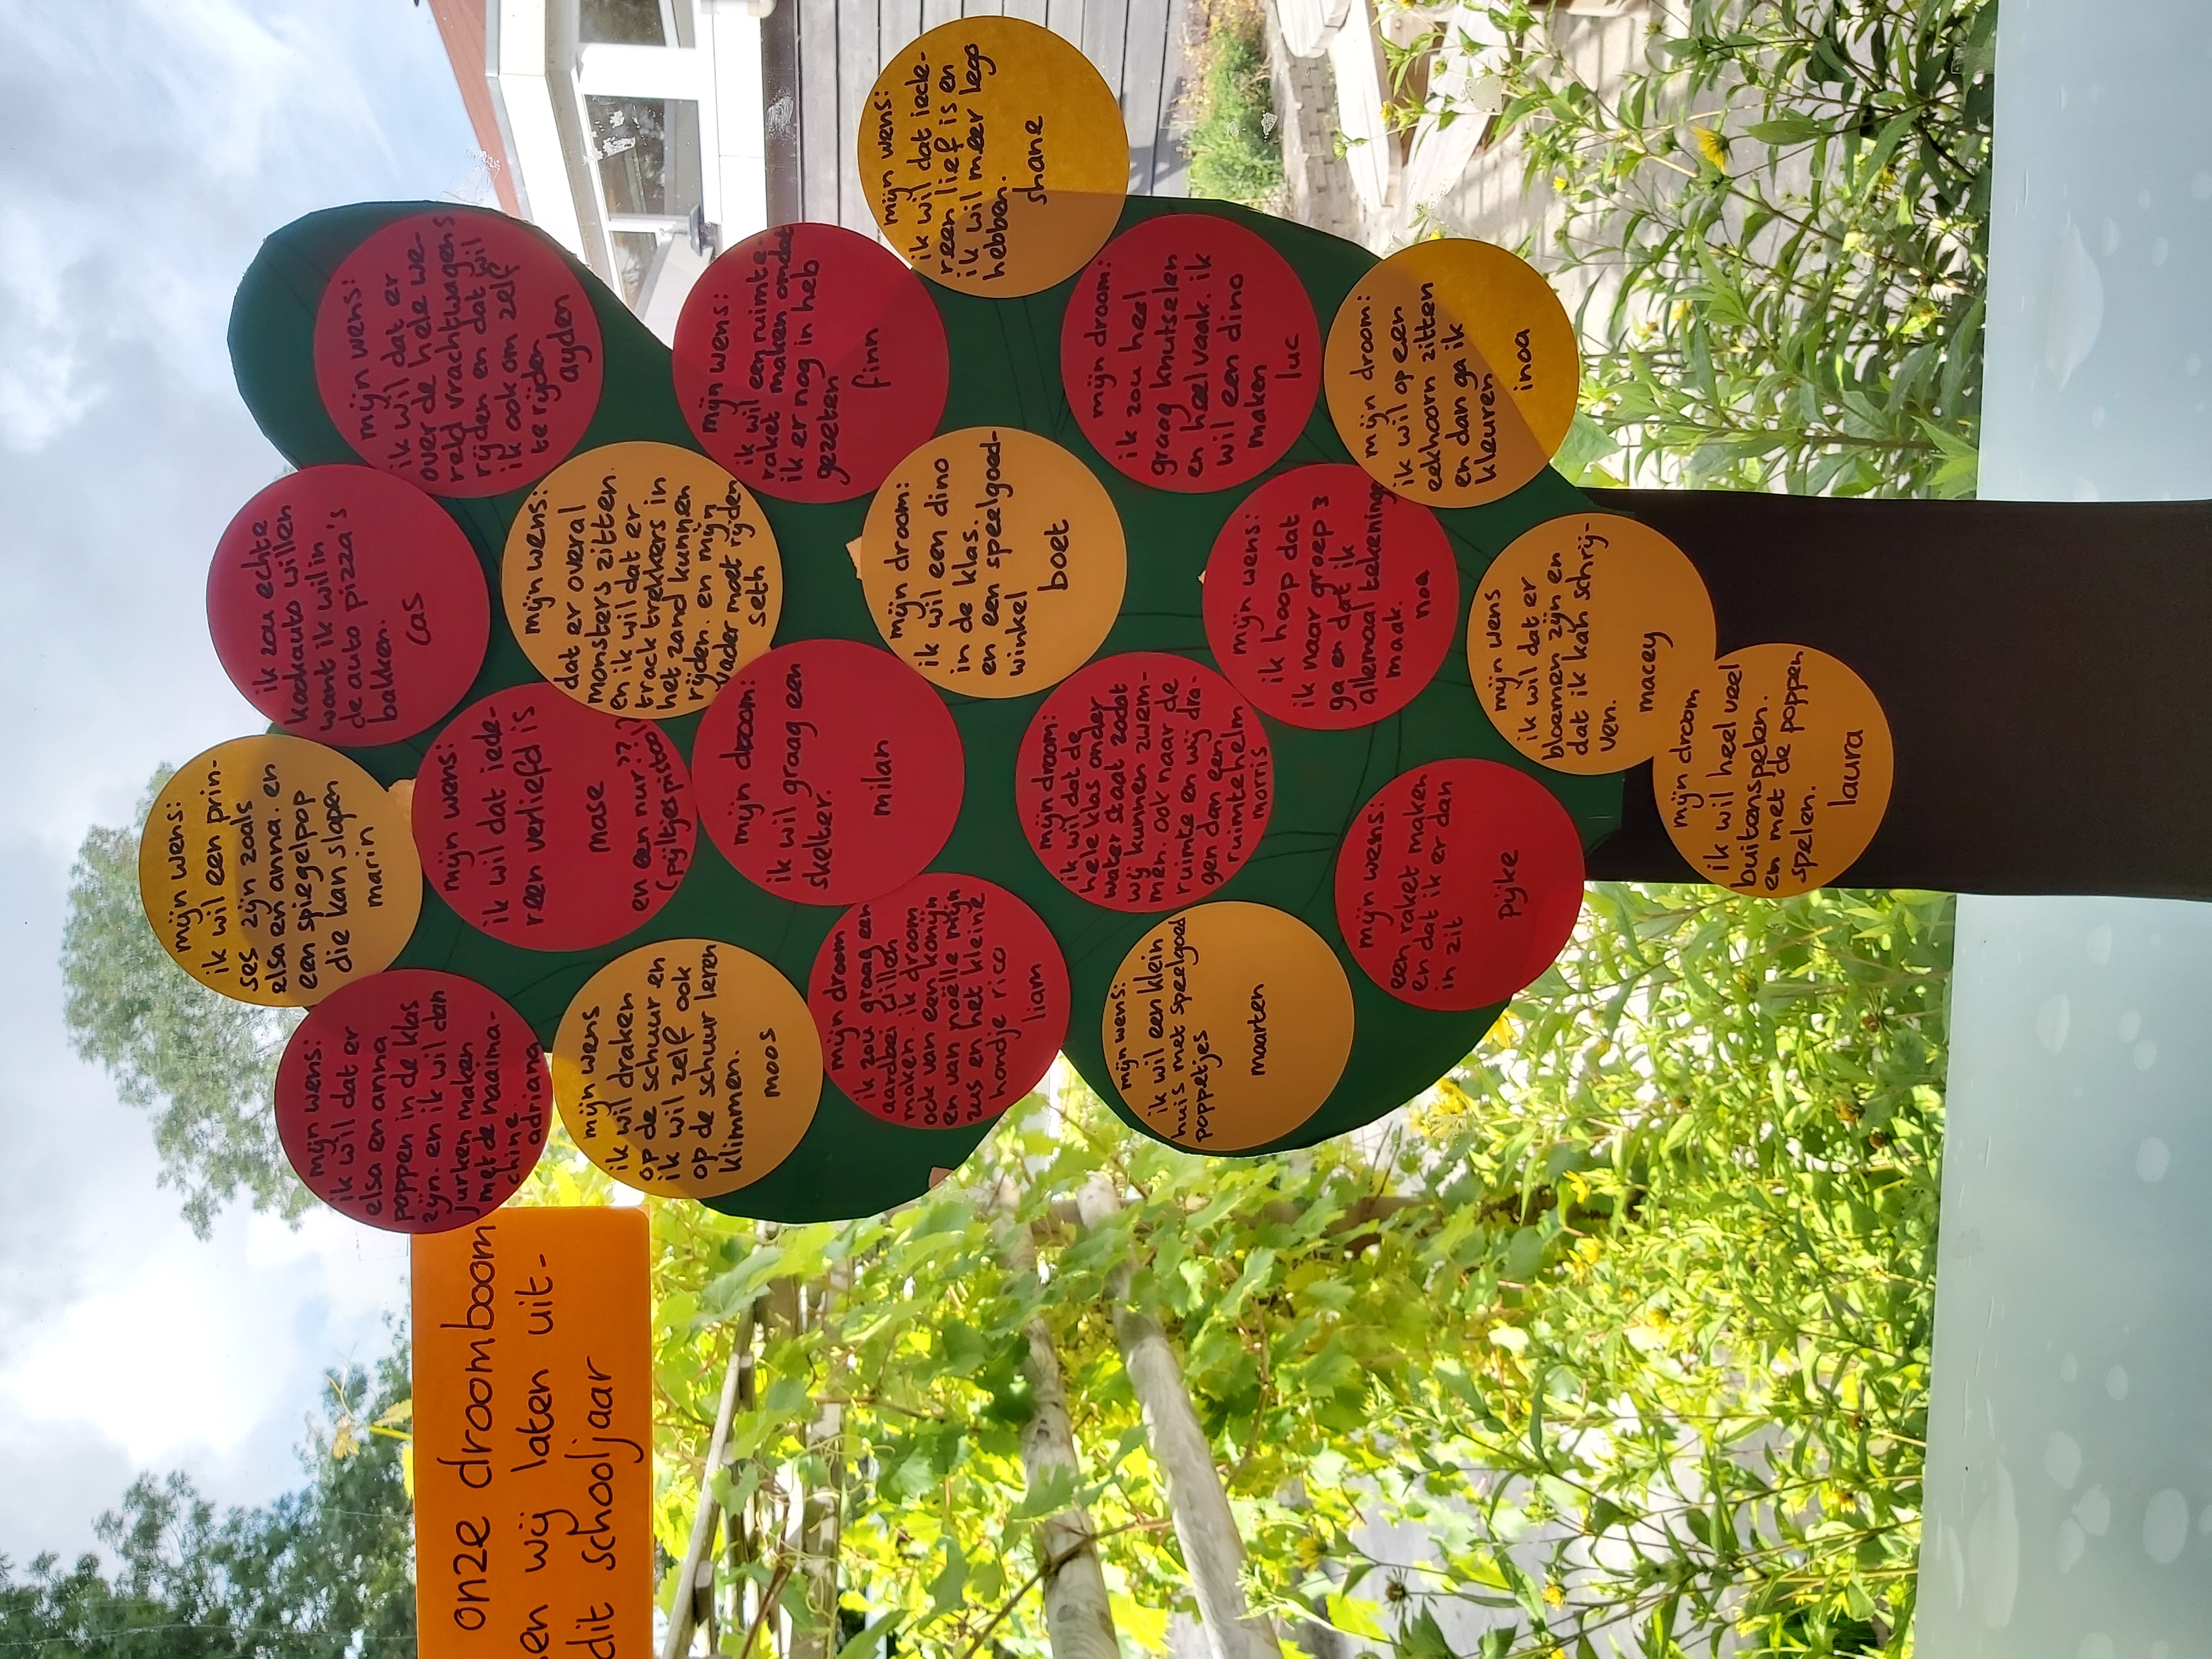 onze droomboom
wij laten uit-
dit schooljaar
mijn wens:
ik wil een prin-
ses zijn zoals
elsa en anna. en
een spiegelpop
die kan slapen
marin
ik zou echte
kookauto willen
want ik wil in
de auto pizza's
bakken.
cas
mijn wens:
ik wil dat er
elsa en anna
poppen in de klas
zijn. en ik wil dan
jurken maken
met de naaima-
chine
adriana
mijn wens:
ik wil dat er
over de hele we-
reld vrachtwagens
rijden en dat wil
ik ook om zelf
te rijden
ayden
mijn wens:
ik wil dat iede-
reen verliefd is
mase
en een nur??
(pijltjespistool)
mijn wens:
dat er overal
monsters zitten.
en ik wil dat er
track trekkers in
het zand kunnen
rijden. en mijn
vader moet rijden
seth
mijn wens
ik wil draken
op de schuur en
ik wil zelf ook
op de schuur leren
klimmen.
moos
mijn wens:
ik wil een ruimte-
raket maken omdat
ik er nog in heb
gezeten
finn
mijn droom:
ik wil graag een
skelter.
milan
mijn droom
ik zou graag een
aardbei willen
maken. ik droom
ook van een konijn
en van noëlle mijn
zus en het kleine
hondje rico
liam
mijn wens:
ik wil dat iede-
reen lief is en
ik wil meer lego
hebben.
shane
mijn droom:
ik wil een dino
in de klas.
en een speelgoed-
winkel
boet
mijn droom:
ik wil dat de
hele klas onder
water staat zodat
wij kunnen zwem-
men. ook naar de
ruimte en wij dra-
gen dan een
ruimtehelm
morris
mijn droom:
ik zou heel
graag knutselen
en heel vaak. ik
wil een dino
maken
luc
mijn wens:
ik wil een klein
huis met speelgoed
poppetjes
maarten
mijn wens:
ik hoop dat
ik naar groep 3
ga en dat ik
allemaal tekeningen
maak.
noa
mijn droom:
ik wil op een
eekhoorn zitten
en dan ga ik
kleuren
inoa
mijn wens:
een raket maken
en dat ik er dan
in zit
pijke
mijn wens
ik wil dat er
bloemen zijn en
dat ik kan schrij-
ven.
macey
mijn droom
ik wil heel veel
buitenspelen.
en met de poppen
spelen.
laura